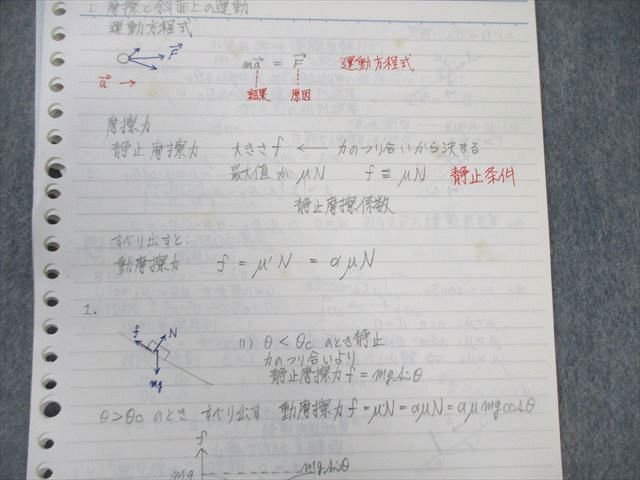 1. 摩擦と斜面上の運動
運動方程式
F
a →
ma = F 運動方程式
結果 原因
摩擦力
静止摩擦力 大きさ f ← 力のつり合いから決まる
最大値が μN f ≦ μN 静止条件
静止摩擦係数
すべり出すと.
動摩擦力 f = μ'N = αμN
1.
f N
mg
(1) θ < θc のとき静止
力のつり合いより
静止摩擦力 f = mg sinθ
θ > θc のとき すべり出す 動摩擦力 f = μ'N = αμN = αμmg cosθ
f
mg
mg sinθ